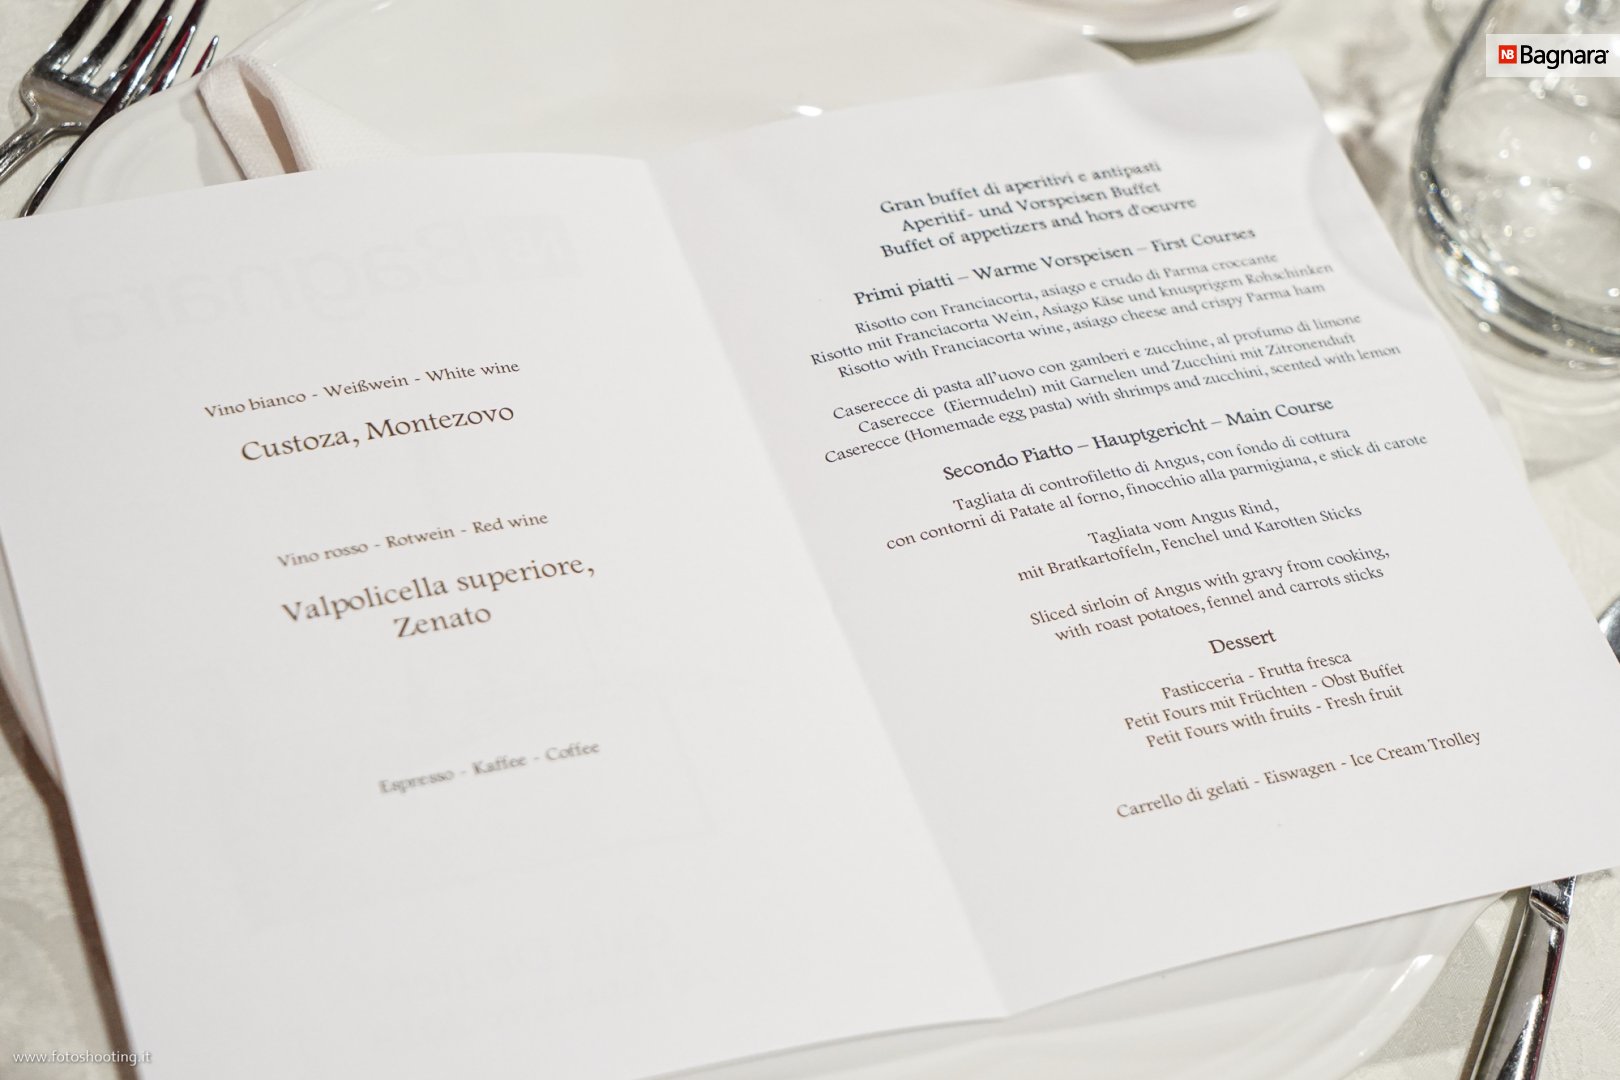 NB Bagnara
Vino bianco - Weißwein - White wine
Custoza, Montezovo
Vino rosso - Rotwein - Red wine
Valpolicella superiore,
Zenato
Espresso - Kaffee - Coffee
Gran buffet di aperitivi e antipasti
Aperitif- und Vorspeisen Buffet
Buffet of appetizers and hors d'oeuvre
Primi piatti – Warme Vorspeisen – First Courses
Risotto con Franciacorta, asiago e crudo di Parma croccante
Risotto mit Franciacorta Wein, Asiago Käse und knusprigem Rohschinken
Risotto with Franciacorta wine, asiago cheese and crispy Parma ham
Caserecce di pasta all'uovo con gamberi e zucchine, al profumo di limone
Caserecce (Eiernudeln) mit Garnelen und Zucchini mit Zitronenduft
Caserecce (Homemade egg pasta) with shrimps and zucchini, scented with lemon
Secondo Piatto – Hauptgericht – Main Course
Tagliata di controfiletto di Angus, con fondo di cottura
con contorni di Patate al forno, finocchio alla parmigiana, e stick di carote
Tagliata vom Angus Rind,
mit Bratkartoffeln, Fenchel und Karotten Sticks
Sliced sirloin of Angus with gravy from cooking,
with roast potatoes, fennel and carrots sticks
Dessert
Pasticceria - Frutta fresca
Petit Fours mit Früchten - Obst Buffet
Petit Fours with fruits - Fresh fruit
Carrello di gelati - Eiswagen - Ice Cream Trolley
www.fotoshooting.it